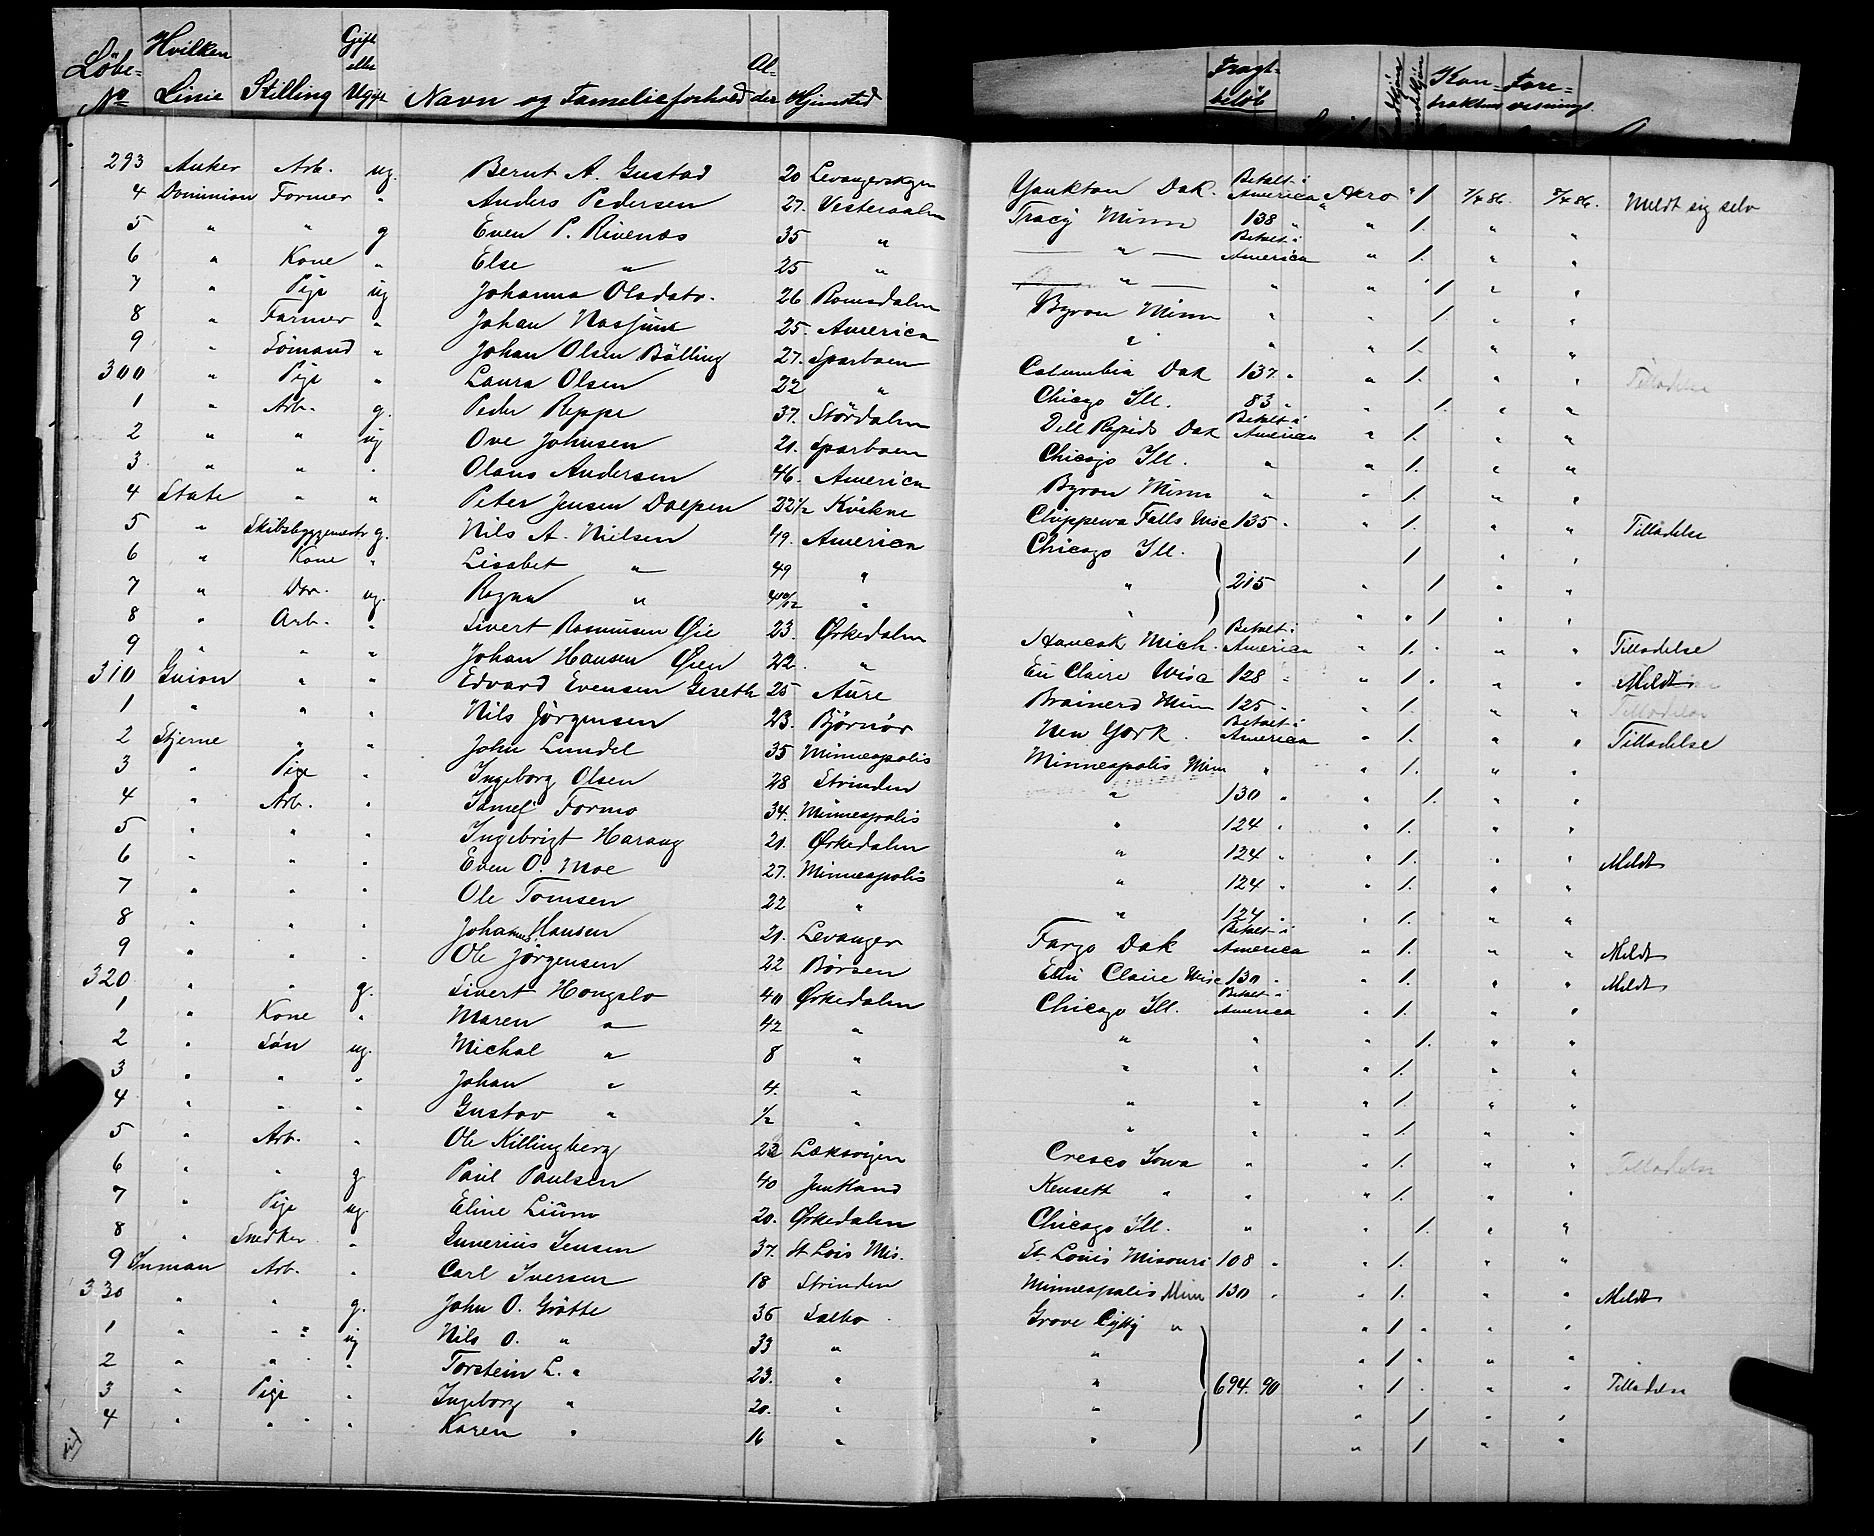 Löbe- No Hvilken Linie Stilling Gift eller Ugift Navn og Familieforhold Alder Hjemsted Fragtbeløb Kontraktens Forevisning
293 Anker Arb. ug. Bernt A. Gustad 20 Levangerskgn Yankton Dak. Betalt i America " Aero " 1 7/4 86. 8/4 86. Meldt sig selv
4 Dominion Farmer " Anders Pedersen 27. Vesteraalen Tracy Minn 138 " " 1. " "
5 " " g Even P. Rivenæs 35 " " Betalt i America " 1. " "
6 " Kone " Else " 25 " " " " 1 " "
7 " Pige ug Johanna Olsdatr. 26 Romsdalen Byron Minn " " 1 " "
8 " Farmer " Johan 25. America " " " 1. " "
9 " Sömand " Johan Olsen Bölling 27. Sparboen Columbia Dak 137 " " 1. " " Tilladelse
300 " Pige " Laura Olsen 22 " Chicago Ill. 83 " " 1. " "
1 " Arb. g. Peder Reppe 37. Stördalen Dell Rapids Dak Betalt i America " 1. " "
2 " " ug Ove Johnsen 21. Sparboen Chicago Ill. " " 1. " "
3 " " " Olaus Andersen 46. America Byron Minn " " 1. " "
4 State " " Peter Jensen Dalpen 22 1/2 Kvikne Chippewa Falls Wisc 135 " " 1. " " Tilladelse
5 " Skibsbyggemestr g. Nils A. Nielsen 49. America Chicago Ill. 1 " "
6 " Kone " Lisabet " 49 " " 215 " 1 " "
7 " Dar. ug. Ragna " 4 10/12 " " " " 1 " "
8 " Arb. " Sivert Rasmusen Øie 23. Ørkedalen Hancok Mich. Betalt i America " 1. " " Tilladelse
9 " " " Johan Hansen Øien 22. " Eu Claire Wisc 128 " " 1. " " Meldt
310 Guion " " Edvard Evensen Geseth 25 Aure Brainerd Minn 125 " " 1. " " Tilladelse
1 " " " Nils Jörgensen 23. Bjørnör New York. Betalt i America " 1. " " Tilladelse
2 Stjerne " " John Lundel 35 Minneapolis Minneapolis Minn " " 1. " "
3 " Pige " Ingeborg Olsen 28 Strinden " 130 " " 1. " "
4 " Arb. " Formo 34. Minneapolis " 124 " " 1. " "
5 " " " Ingebrigt Harang 21. Ørkedalen " 124 " " 1. " " Meldt
6 " " " Even O. Moe 27. Minneapolis " 124 " " 1. " "
7 " " " Ole Tomsen 22 " " 124 " " 1. " "
8 " " " Johannes Hansen 21. Levanger Fargo Dak Betalt i America " 1. " " Meldt
9 " " " Ole Jörgensen 22 Börsen Claire Wisc 130 " " 1. " " Meldt
320 " " g. Sivert Hongslo 40 Ørkedalen Chicago Ill. Betalt i America " 1. " "
1 " Kone " Maren " 42 " " " " 1. " "
2 " Sön ug. Michal " 8 " " " " 1. " "
3 " " " Johan " 4. " " " " 1. " "
4 " " " Gustav " 1/2 " " " " 1. " "
5 " Arb. " Ole Killingberg 22 Læksvigen Cresco Iowa " " 1. " " Tilladelse
6 " " g Paul Paulsen 40 Jemtland Kensett " " " 1. " "
7 " Pige ug. Eline Lium 20. Ørkedalen Chicago Ill. " " 1. " "
8 " Snedker " Gunerius Jensen 37. St Lois Mis. St. Louis Misouri 108 " " 1. " "
9 Inman Arb. " Carl Iversen 18 Strinden Minneapolis Minn 130 " " 1. " " Meldt
330 " " g. John O. Grötte 36 Salbo Grove City " " 1 " " "
1 " " ug Nils O. " 33 " " " 1 " " "
2 " " " Torstein L. " 23. " " 694. 90 " 1 " " Tilladelse
3 " Pige " Ingeborg " 20. " " " 1 " "
4 " " " Karen " 16 " " " 1 " "